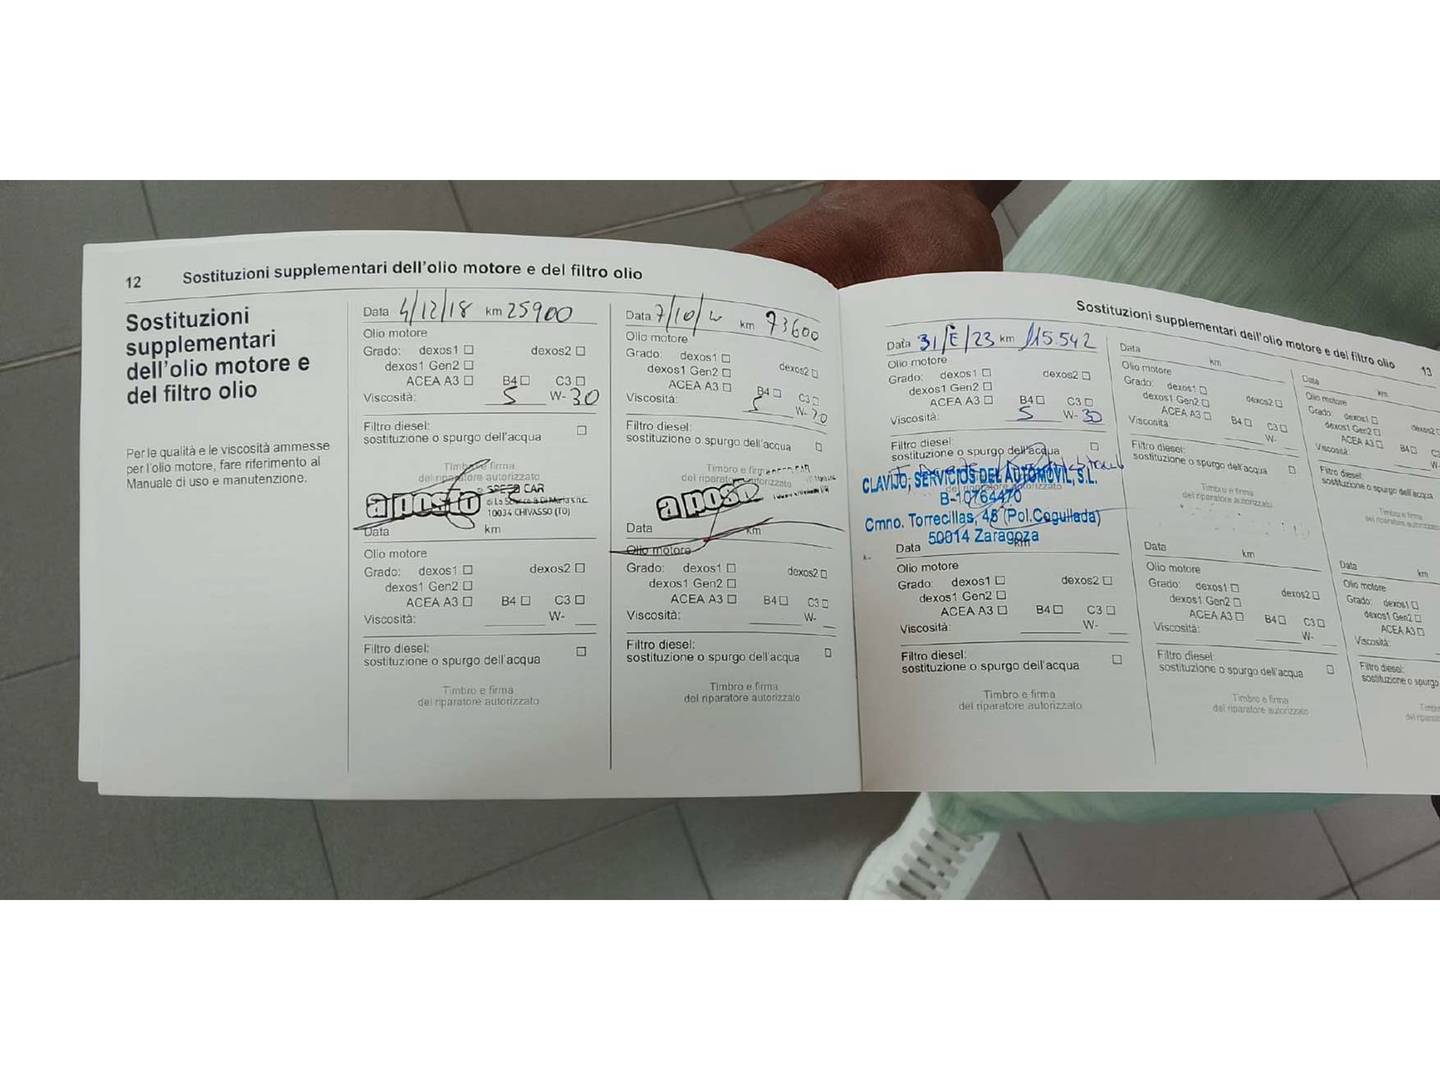 12 Sostituzioni supplementari dell'olio motore e del filtro olio
Sostituzioni
supplementari
dell'olio motore e
del filtro olio
Per le qualità e le viscosità ammesse
per l'olio motore, fare riferimento al
Manuale di uso e manutenzione.
Data 4/12/18 km 25900
Olio motore
Grado: dexos1 □ dexos2 □
dexos1 Gen2 □
ACEA A3 □ B4 □ C3 □
Viscosità: 5 W- 30
Filtro diesel:
sostituzione o spurgo dell'acqua □
Timbro e firma
del riparatore autorizzato
a posto
SPEED CAR
10034 CHIVASSO (TO)
Data km
Olio motore
Grado: dexos1 □ dexos2 □
dexos1 Gen2 □
ACEA A3 □ B4 □ C3 □
Viscosità: W-
Filtro diesel:
sostituzione o spurgo dell'acqua □
Timbro e firma
del riparatore autorizzato
Data 7/10/ km 73600
Olio motore
Grado: dexos1 □ dexos2 □
dexos1 Gen2 □
ACEA A3 □ B4 □ C3 □
Viscosità: 5 W-
Filtro diesel:
sostituzione o spurgo dell'acqua □
Timbro e firma
del riparatore autorizzato
a posto
Data km
Olio motore
Grado: dexos1 □ dexos2 □
dexos1 Gen2 □
ACEA A3 □ B4 □ C3 □
Viscosità: W-
Filtro diesel:
sostituzione o spurgo dell'acqua □
Timbro e firma
del riparatore autorizzato
Sostituzioni supplementari dell'olio motore e del filtro olio 13
Data 31/E/23 km 115.542
Olio motore
Grado: dexos1 □ dexos2 □
dexos1 Gen2 □
ACEA A3 □ B4 □ C3 □
Viscosità: 5 W- 30
Filtro diesel:
sostituzione o spurgo dell'acqua □
CLAVIJO, SERVICIOS DEL AUTOMOVIL, S.L.
B-10764470
Cmno. Torrecillas, 45 (Pol.Cogullada)
50014 Zaragoza
Data km
Olio motore
Grado: dexos1 □ dexos2 □
dexos1 Gen2 □
ACEA A3 □ B4 □ C3 □
Viscosità: W-
Filtro diesel:
sostituzione o spurgo dell'acqua □
Timbro e firma
del riparatore autorizzato
Data km
Olio motore
Grado: dexos1 □ dexos2 □
dexos1 Gen2 □
ACEA A3 □ B4 □ C3 □
Viscosità: W-
Filtro diesel:
sostituzione o spurgo dell'acqua □
Timbro e firma
del riparatore autorizzato
Data km
Olio motore
Grado: dexos1 □ dexos2 □
dexos1 Gen2 □
ACEA A3 □ B4 □ C3 □
Viscosità: W-
Filtro diesel:
sostituzione o spurgo dell'acqua □
Timbro e firma
del riparatore autorizzato
Data km
Olio motore
Grado: dexos1 □ dexos2
dexos1 Gen2 □
ACEA A3 □ B4 □ C3 □
Viscosità: W-
Filtro diesel:
sostituzione o spurgo dell'acqua
Timbro e firma
del riparatore autorizzato
Data km
Olio motore
Grado: dexos1 □
dexos1 Gen2 □
ACEA A3 □
Viscosità:
Filtro diesel:
sostituzione o spurgo